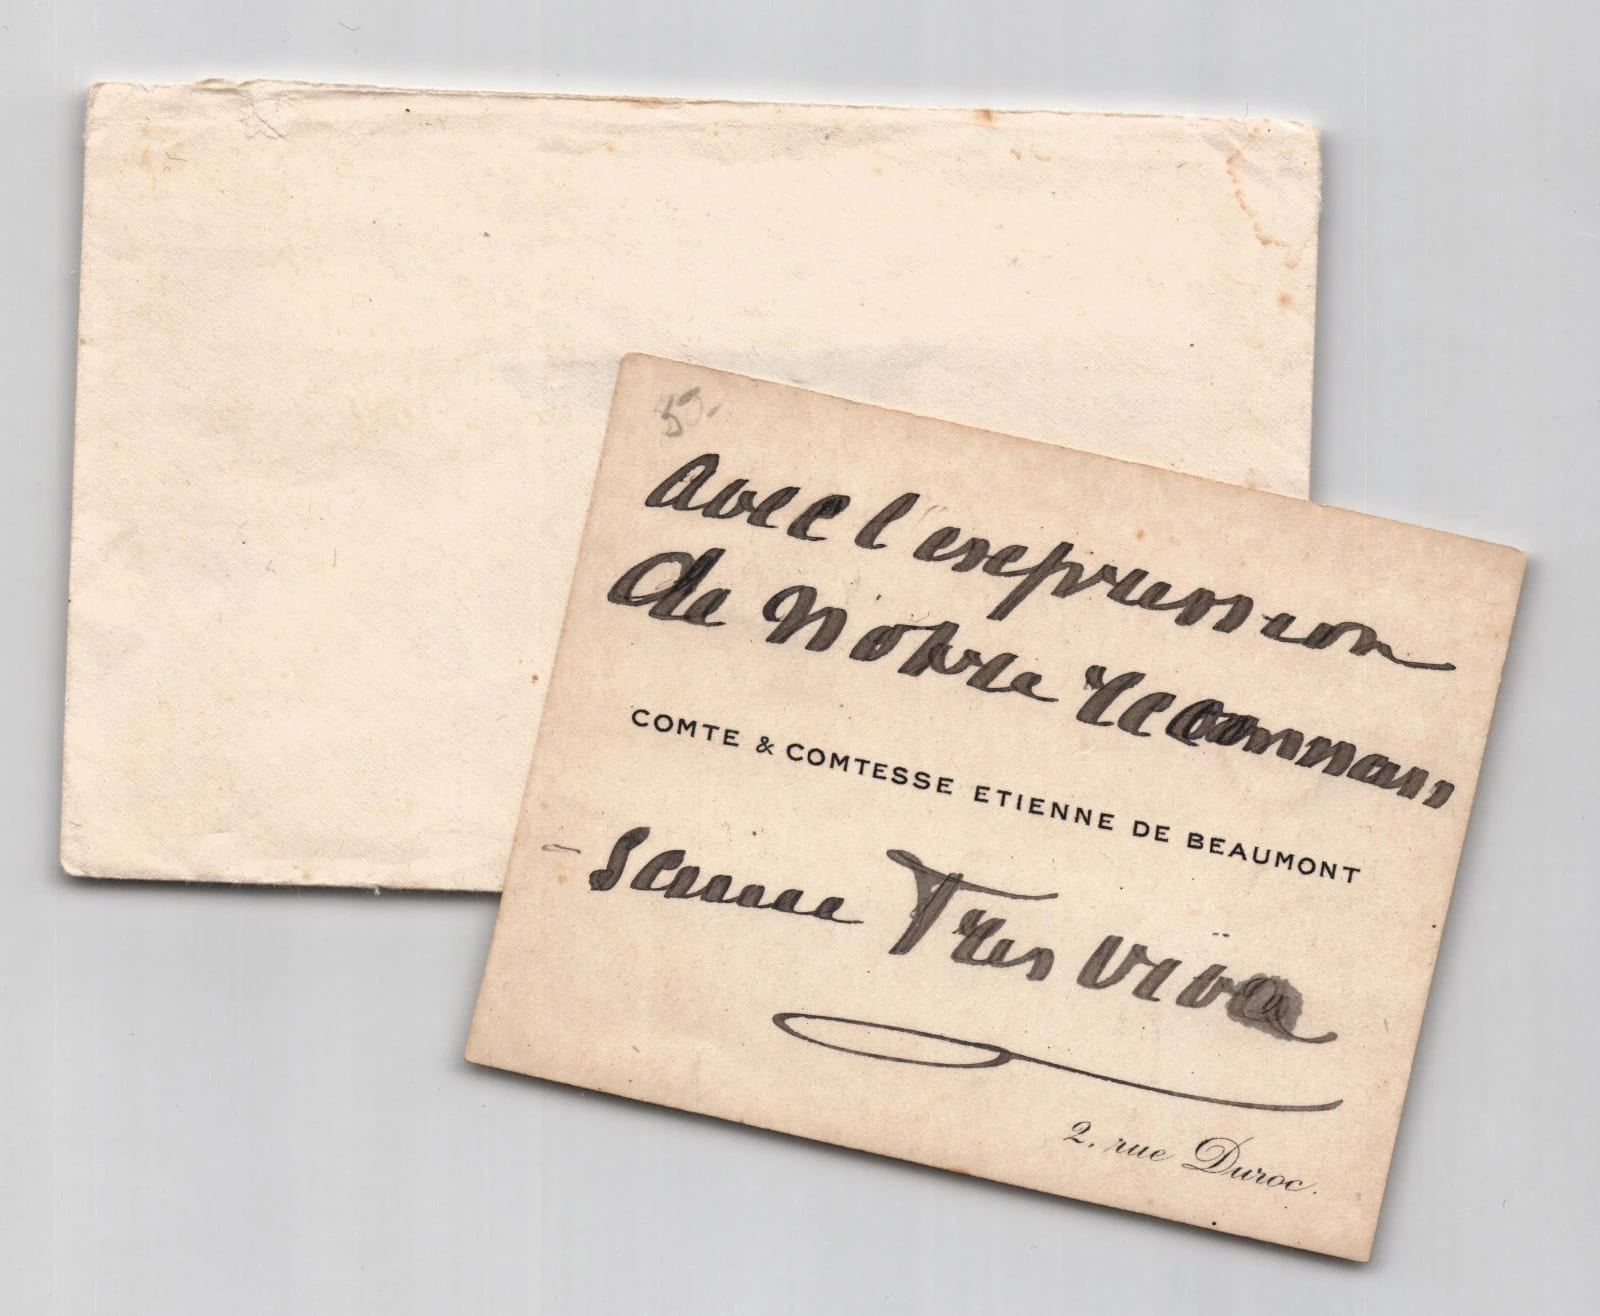 avec l'expression
de notre reconnais
COMTE & COMTESSE ETIENNE DE BEAUMONT
- sance Tres vive
2, rue Duroc.